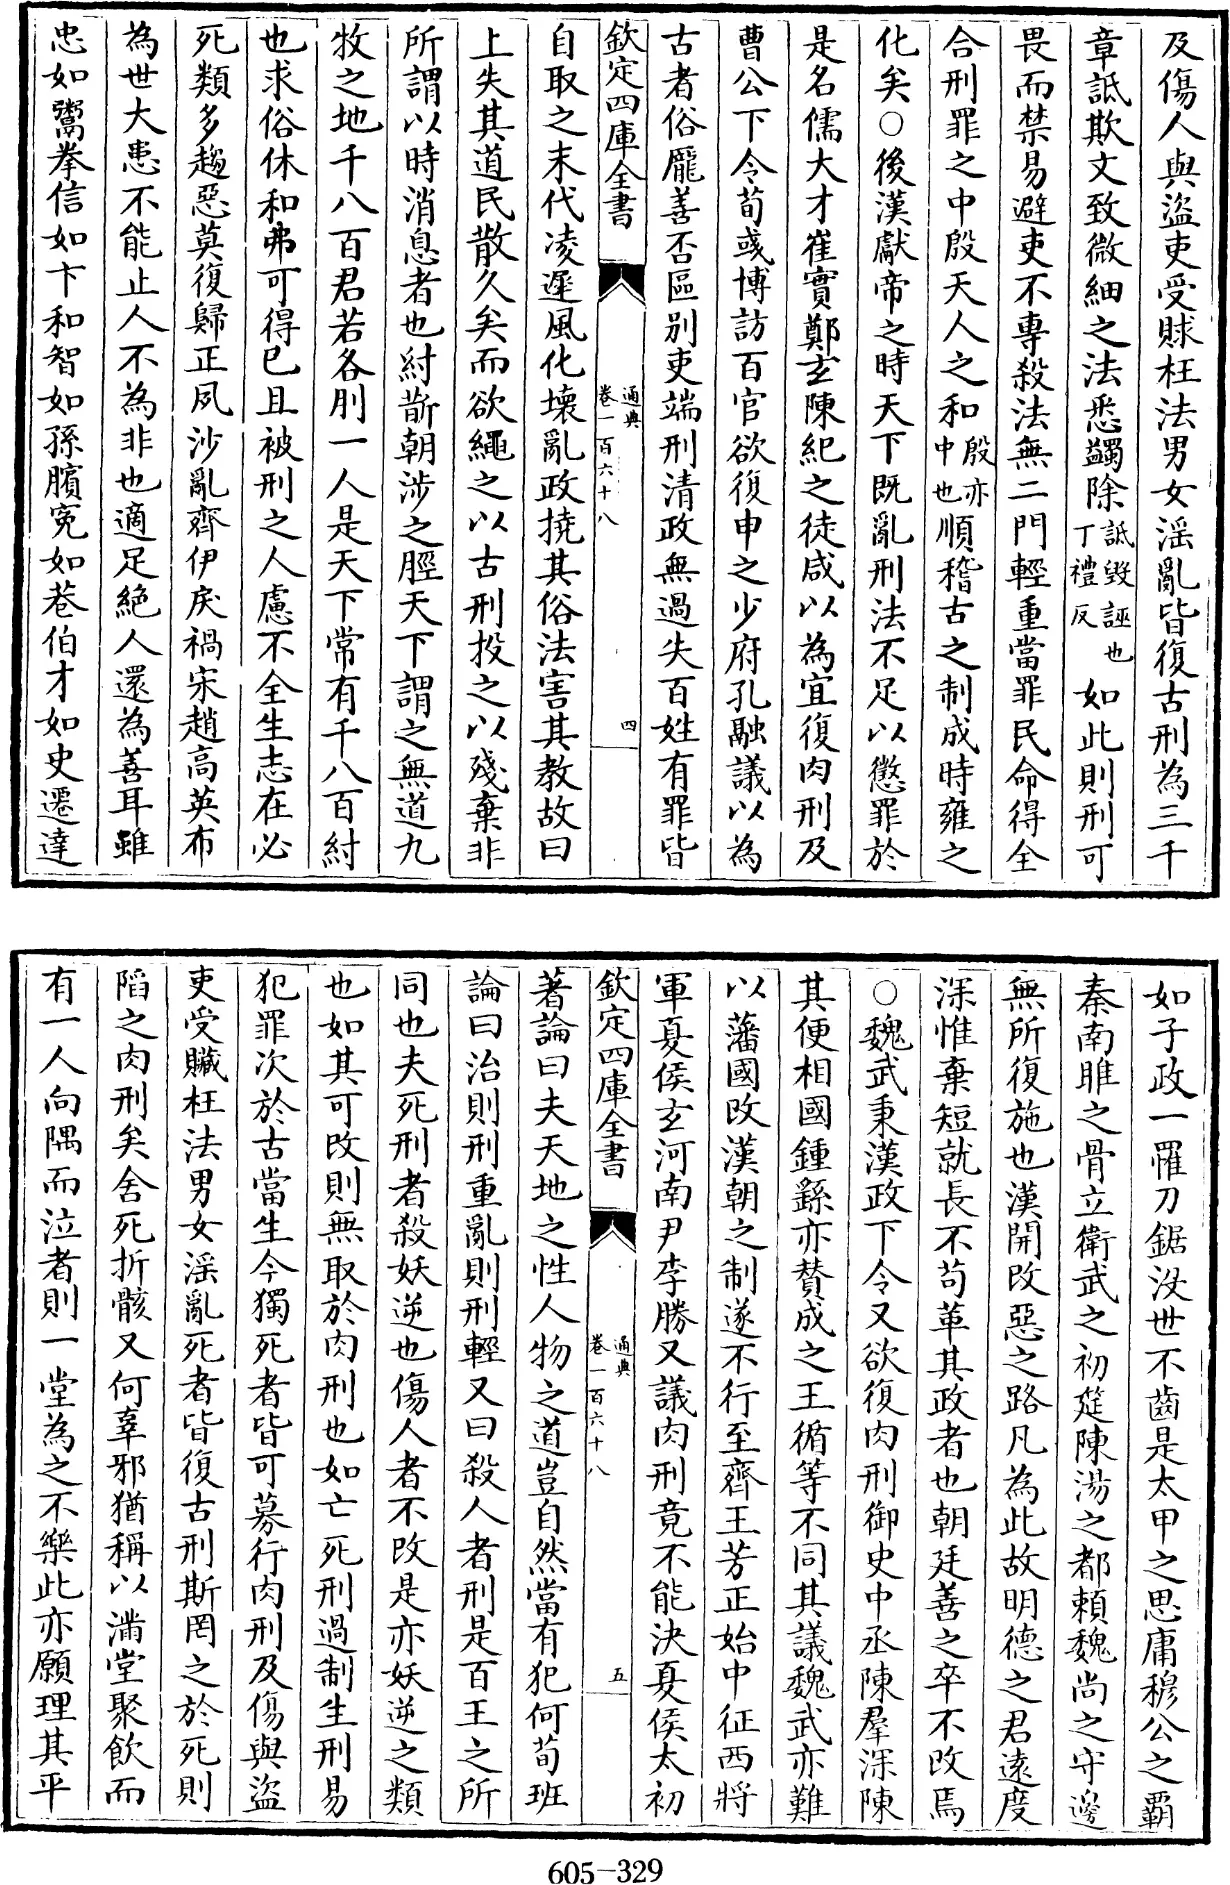 及傷人與盜吏受賕枉法男女淫亂皆復古刑為三千
章詆欺文致微細之法悉蠲除詆毀誣也丁禮反如此則刑可
畏而禁易避吏不專殺法無二門輕重當罪民命得全
合刑罪之中殷天人之和殷亦中也順稽古之制成時雍之
化矣○後漢獻帝之時天下既亂刑法不足以懲罪於
是名儒大才崔實鄭玄陳紀之徒咸以為宜復肉刑及
曹公下令荀彧博訪百官欲復申之少府孔融議以為
古者俗龐善否區别吏端刑清政無過失百姓有罪皆
欽定四庫全書
通典
卷一百六十八
四
自取之末代凌遲風化壞亂政撓其俗法害其教故曰
上失其道民散久矣而欲繩之以古刑投之以殘棄非
所謂以時消息者也紂斮朝涉之脛天下謂之無道九
牧之地千八百君若各刖一人是天下常有千八百紂
也求俗休和弗可得已且被刑之人慮不全生志在必
死類多趨惡莫復歸正夙沙亂齊伊戾禍宋趙高英布
為世大患不能止人不為非也適足絶人還為善耳雖
忠如鬻拳信如卞和智如孫臏寃如巷伯才如史遷達
如子政一罹刀鋸沒世不齒是太甲之思庸穆公之霸
秦南睢之骨立衛武之初筵陳湯之都賴魏尚之守邊
無所復施也漢開改惡之路凡為此故明德之君遠度
深惟棄短就長不苟革其政者也朝廷善之卒不改焉
○魏武秉漢政下令又欲復肉刑御史中丞陳羣深陳
其便相國鍾繇亦贊成之王脩等不同其議魏武亦難
以藩國改漢朝之制遂不行至齊王芳正始中征西將
軍夏侯玄河南尹李勝又議肉刑竟不能決夏侯太初
欽定四庫全書
通典
卷一百六十八
五
著論曰夫天地之性人物之道豈自然當有犯何荀班
論曰治則刑重亂則刑輕又曰殺人者刑是百王之所
同也夫死刑者殺妖逆也傷人者不改是亦妖逆之類
也如其可改則無取於肉刑也如亡死刑過制生刑易
犯罪次於古當生今獨死者皆可募行肉刑及傷與盜
吏受贓枉法男女淫亂死者皆復古刑斯罔之於死則
陷之肉刑矣舍死折骸又何辜邪猶稱以滿堂聚飲而
有一人向隅而泣者則一堂為之不樂此亦願理其平
605-329